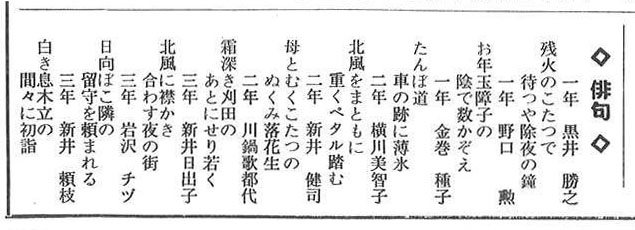 ◇ 俳句 ◇
一年 黒井 勝之
残火のこたつで
待つや除夜の鐘
一年 野口 勲
お年玉障子の
陰で数かぞえ
一年 金巻 種子
たんぼ道
車の跡に薄氷
二年 横川美智子
北風をまともに
重くペタル踏む
二年 新井 健司
母とむくこたつの
ぬくみ落花生
二年 川鍋歌都代
霜深き刈田の
あとにせり若く
三年 新井日出子
北風に襟かき
合わす夜の街
三年 岩沢 チヅ
日向ぼこ隣の
留守を頼まれる
三年 新井 頼枝
白き息木立の
間々に初詣